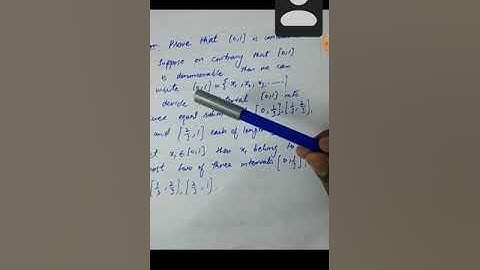 Prove that [0,1] is
Suppose on contrary that [0,1]
is denumerable then we can
write [0,1] = { x₁, x₂, x₃ ----- }
devide interval [0,1] into
equal [0, 1/3], [1/3, 2/3],
and [2/3, 1] each of length
x₁ ∈ [0,1]. then x₁ belong to
most two of three intervals [0, 1/3],
[1/3, 2/3], [2/3, 1].